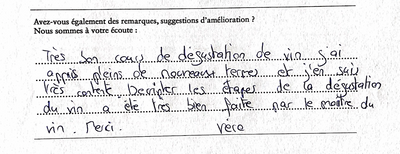 Avez-vous également des remarques, suggestions d'amélioration ?
Nous sommes à votre écoute :
Très bon cours de dégustation de vin j'ai
appris pleins de nouveaux termes et j'en suis
très content. Décripter les étapes de la dégustation
du vin a été très bien faite par le maître du
vin. Merci. Vera